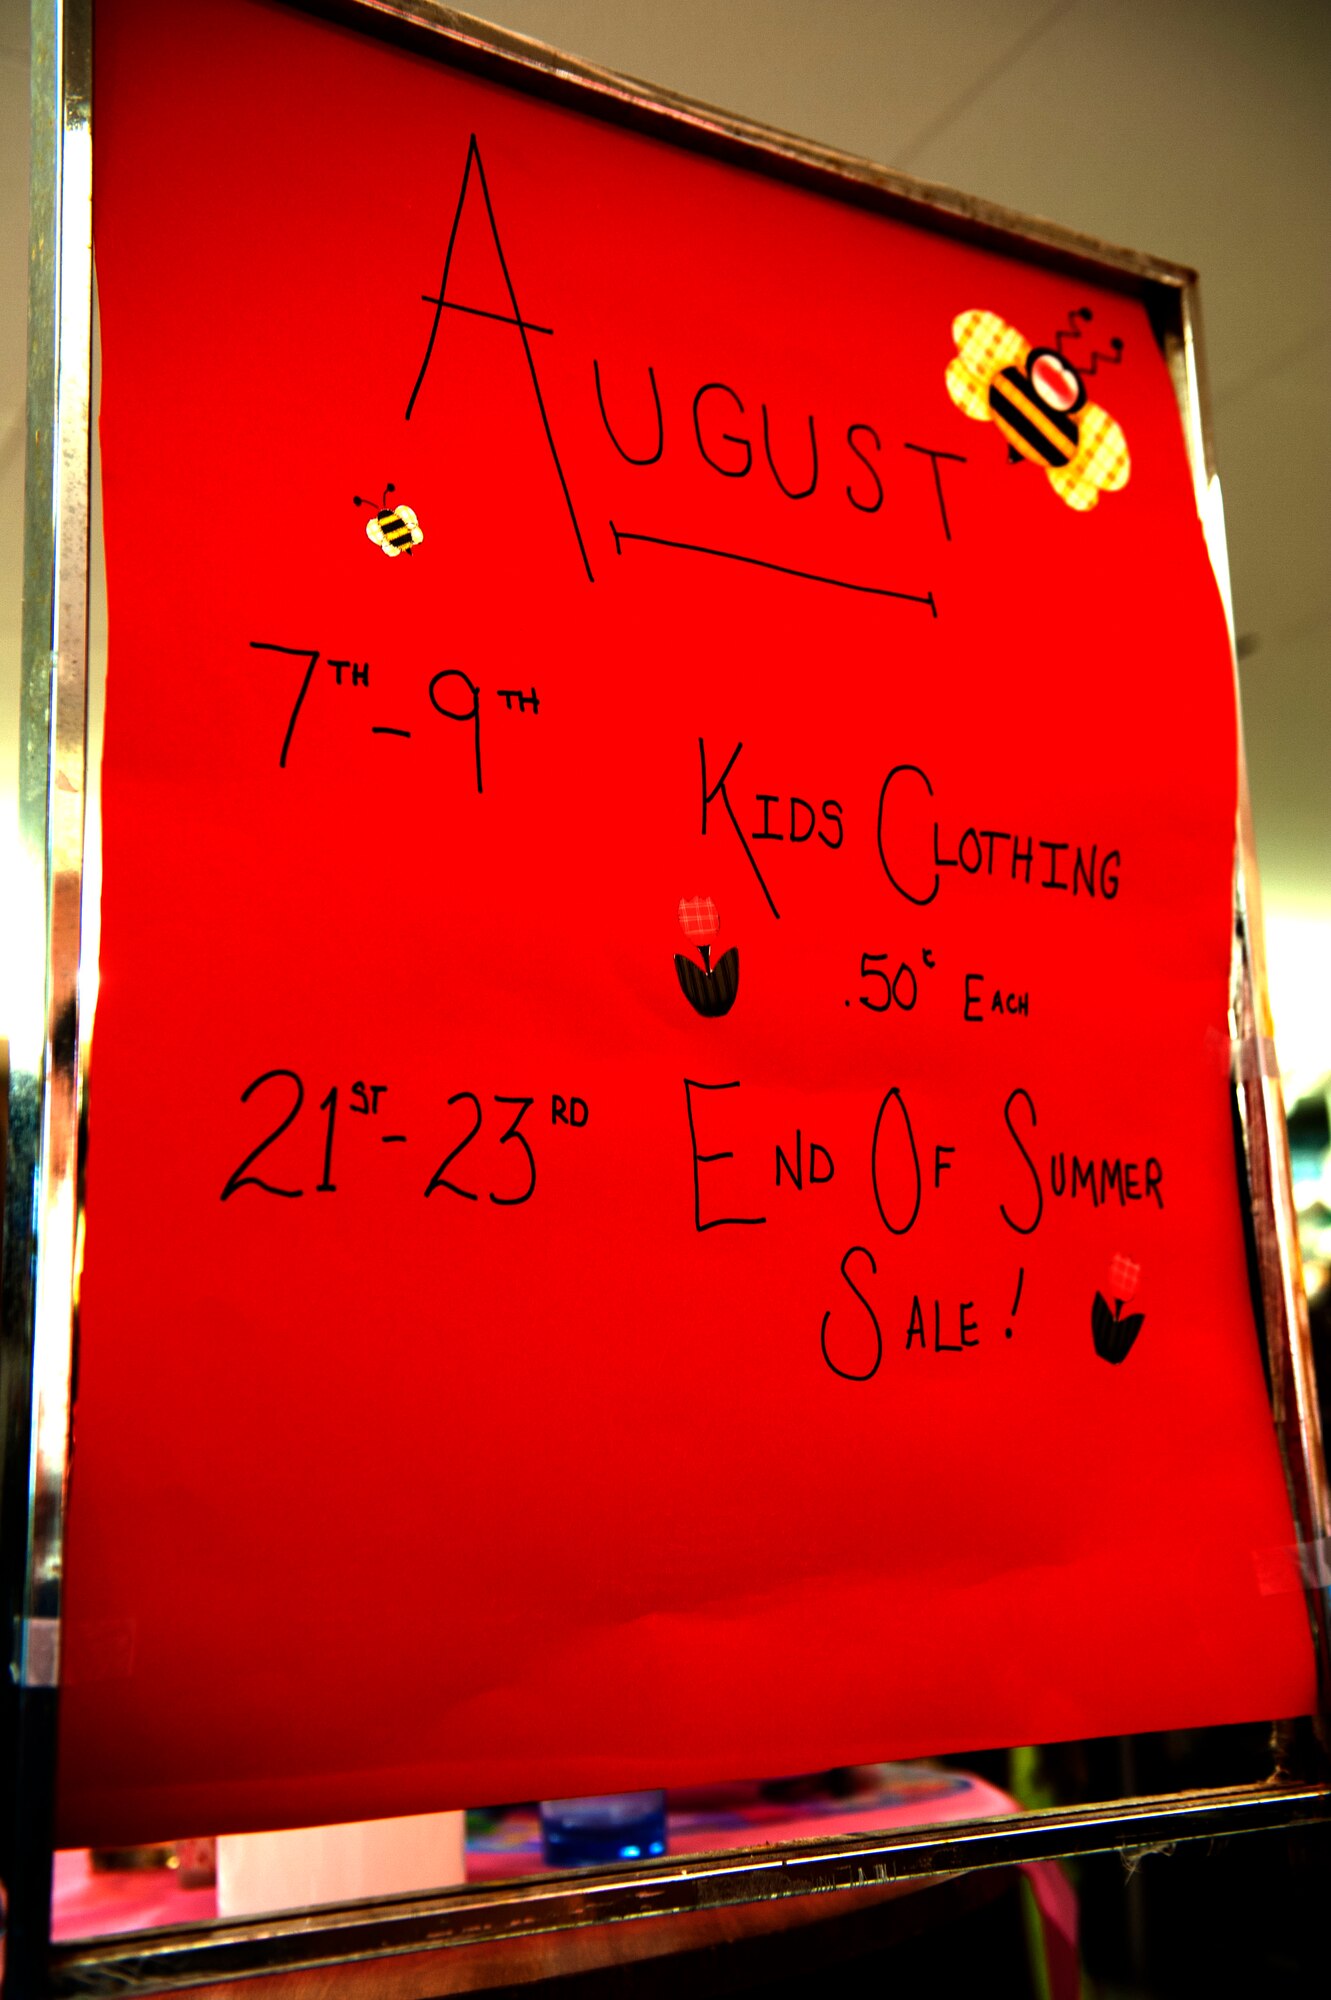 AUGUST
7TH-9TH
KIDS CLOTHING
.50¢ EACH
21ST-23RD END OF SUMMER
SALE!